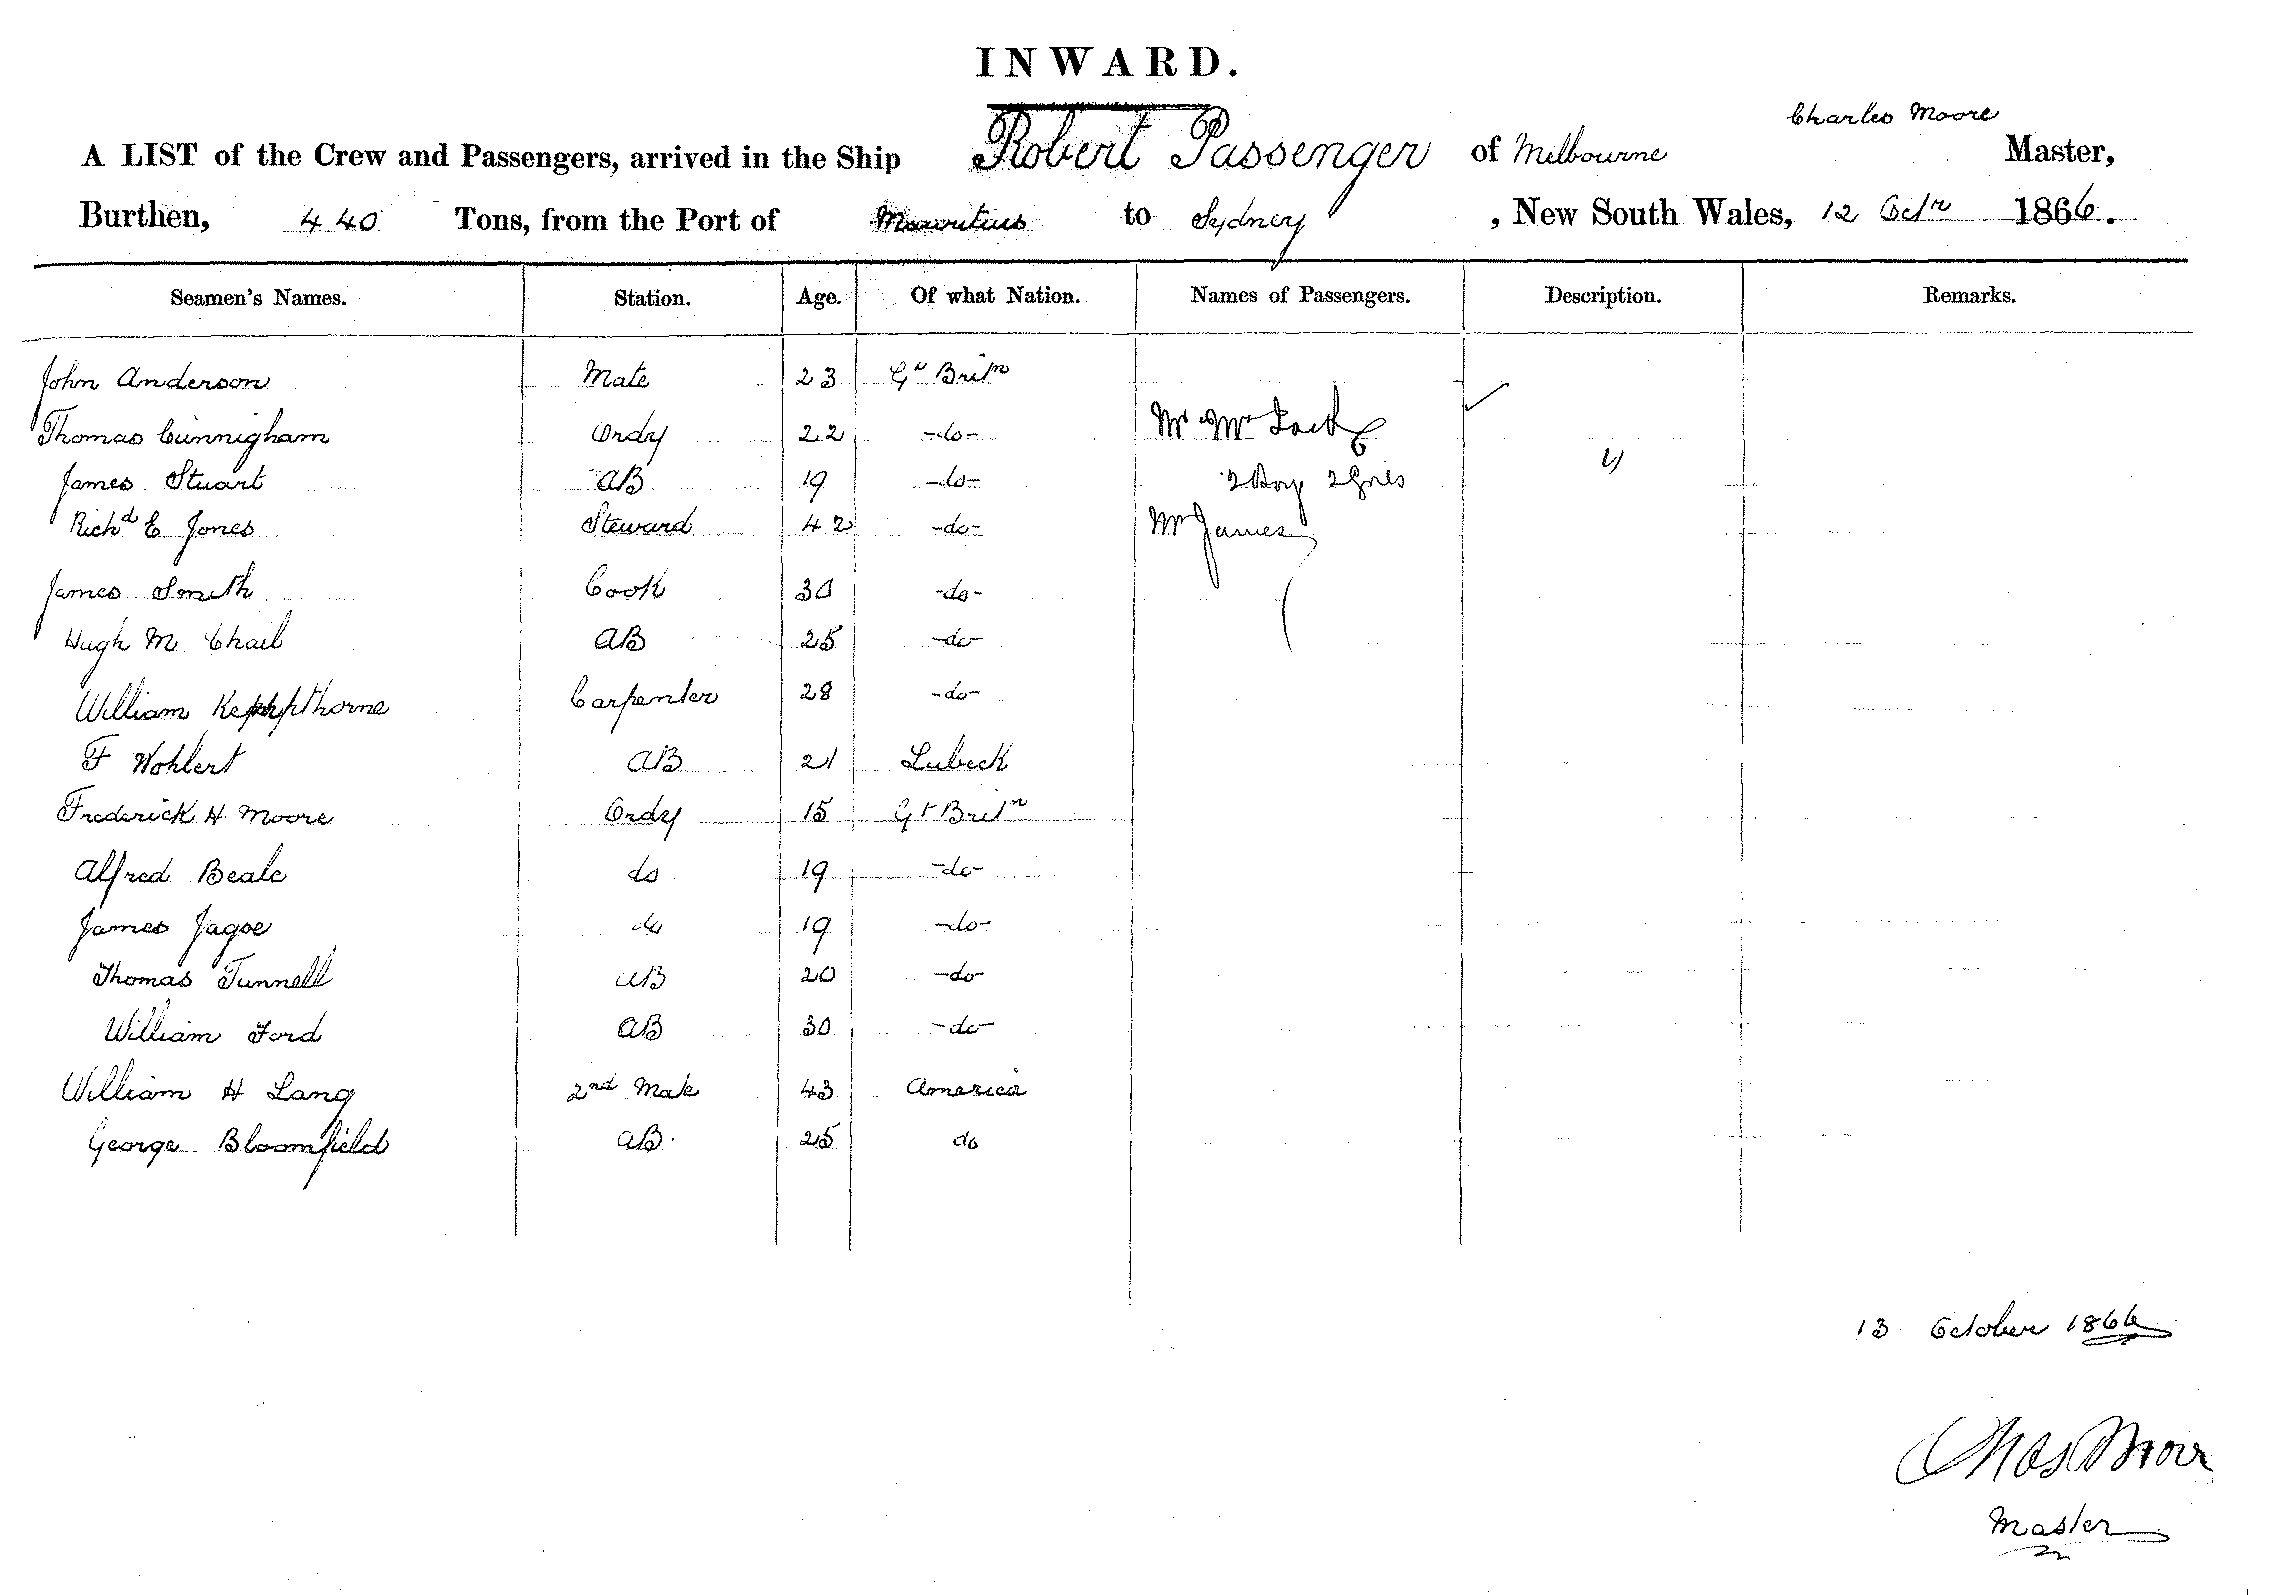 INWARD.
Charles Moore
A LIST of the Crew and Passengers, arrived in the Ship Robert Passenger of Melbourne Master,
Burthen, 440 Tons, from the Port of Mauritius to Sydney, New South Wales, 12 Octr 1866.
Seamen's Names. Station. Age. Of what Nation. Names of Passengers. Description. Remarks.
John Anderson Mate 23 Gt Britn
Thomas Cunnigham Ordy 22 -do- Mr Mrs
James Stuart AB 19 -do- 2 Boys 2 Girls
Richd E Jones Steward 42 -do- Mr James
James Smith Cook 30 -do-
Hugh Mc Chail AB 25 -do-
William Carpenter 28 -do-
F Wohlert AB 21 Lubeck
Frederick H Moore Ordy 15 Gt Britn
Alfred Beale do 19 -do-
James Jagoe do 19 -do-
Thomas Tunnell AB 20 -do-
William Ford AB 30 -do-
William H Lang 2nd Mate 43 America
George Bloomfield AB 25 do
13 October 1866
Chas Moore
Master